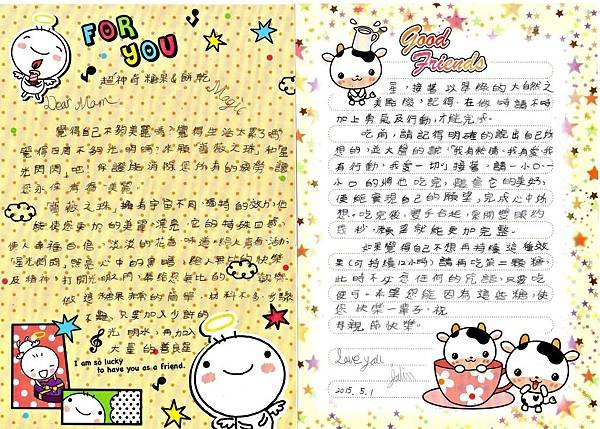 FOR
YOU
超神奇糖果&餅乾
Dear Mam
Magic
覺得自己不夠美麗嗎?覺得生活太累了嗎?
覺得四周不夠光明嗎?來顆「薔薇之珠」和星
光閃閃」吧!保證能消除您所有的疲勞,讓
您永保青春、美麗。
薔薇之珠,擁有宇宙不同、獨特的效力,它
能使您更加的美麗、漂亮,它的特殊口感
使人幸福百倍,淡淡的花香味道,給人青春活力
星光閃閃,照亮心中的黑暗,給人無比的快樂
及精神,打開光明之門,帶給您無比的歡樂。
做這糖果非常的簡單,材料不多,步驟
不難,只要加入少許的
光明水,再加入
大量的善良屋
I am so lucky
to have you as a friend.
Good
Friends
星,接著以單純的大自然之
美點綴,記得,在做時請不時
加上勇氣及行動,才能完成。
吃前,請記得明確的說出自己所
想的,並大聲的說「我有熱情、我有愛、我
有行動,我愛一切」接著,請一小口一
小口的將他吃完,隨會它的美好,
便能實現自己的願望,完成心中所
想。吃完後,雙手合起,靜閉雙眼約
三秒,願望就能更加完整。
如果覺得自己不想再持續這種效
果(可持續12小時)請再吃第二顆糖,
此時不必念任何的咒語,只要吃
便可。希望您能因為這些糖,使
您快樂一輩子,祝
母親節快樂。
Love you
2015.5.1